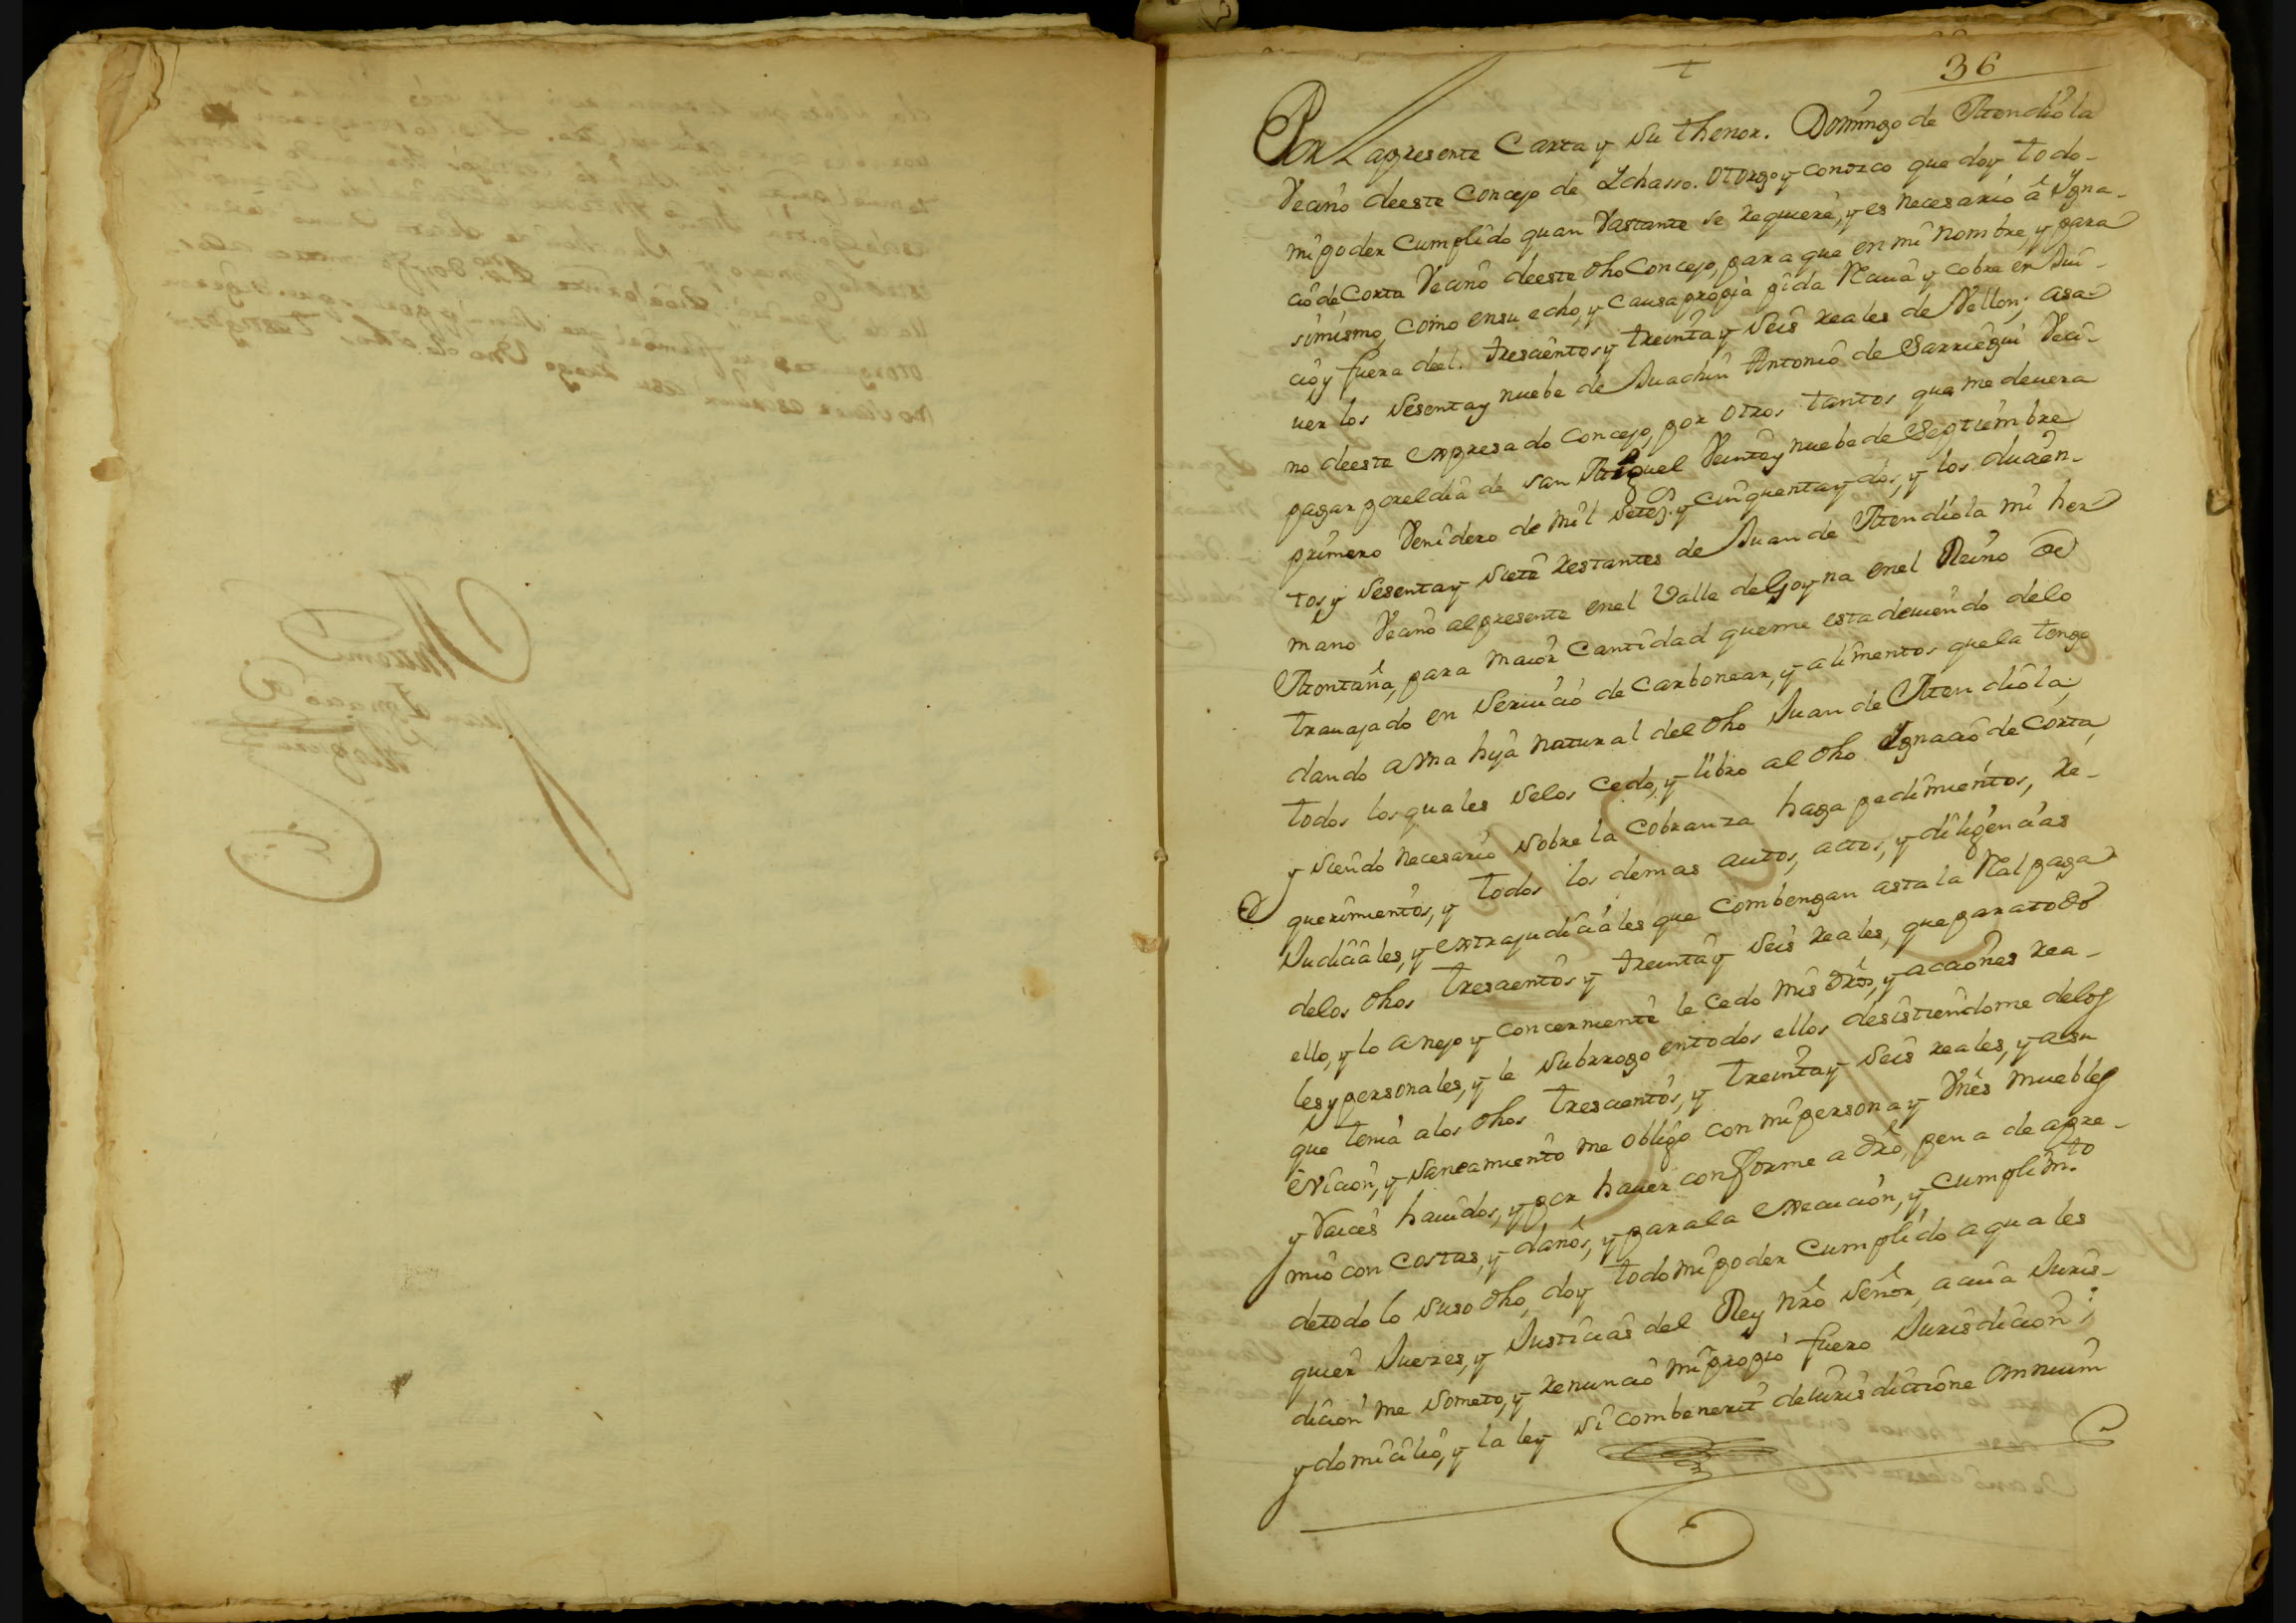 36
Por la presente Carta y su thenor. Domingo de Mendiola
Vecino deeste Concejo de Ichasso. Otorgo y conozco que doy todo
mi poder Cumplido quan Vastante se requiere, y es necesario â Ygna-
cio de Corta Vecino deeste dho Concejo, para que en mi nombre, y para
simismo, como en su echo, y Causa propia pida Reciva y cobre en Jui-
cio y fuera deel. trescientos y treinta y seis reales de Vellon; asa-
ver los sesenta y nuebe de Juachin Antonio de Sarriegui Veci-
no deeste expresado Concejo, por otros tantos que me devera
pagar por el dia de san Miguel Veinte y nuebe de Septiembre
primero Venidero de mil setes. y cinquenta y dos, y los ducien-
tos y sesenta y siete restantes de Juan de Mendiola mi her
mano Vecino al presente en el Valle de Goyna en el Reino de
Montaña, para maior Cantidad que me esta deviendo delo
travajado en servicio de Carbonear, y alimentos que la tengo
dando a Vna hija natural del dho Juan de Mendiola,
todos los quales selos Cedo, y libro al dho Ygnacio de Corta,
y siendo necesario sobre la Cobranza haga pedimientos, re-
querimientos, y todos los demas autos, actos, y diligencias
Judiciales, y extrajudiciales que Combengan asta la Ral paga
delos dhos trescientos y treinta y seis reales, que para todo
ello, y lo anejo y concerniente le Cedo mis dros, y acciones rea-
les y personales, y le subrrogo en todos ellos desistiendome delos
que tenia a los dhos trescientos, y treinta y seis reales, y a su
evicion, y saneamiento me obligo con mi persona y Vnes muebles
y Raices havidos, y por haver conforme a dro, pena de apre-
mio con Costas, y daños, y para la execucion, y cumplim.to
de todo lo suso dho, doy todo mi poder Cumplido a quales
quier Juezes, y Justicias del Rey nro señor, a cuia Juris-
dicion me someto, y renuncio mi propio fuero Jurisdicion;
y domicilio, y la ley si combenerit de iurisdictione omnium